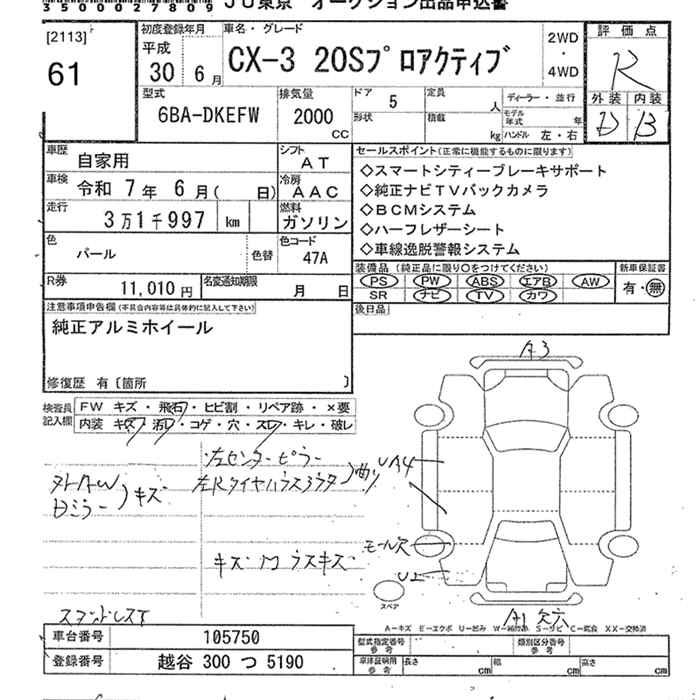 35000027809
JU東京 オークション出品申込書
[2113]
61
初度登録年月
平成
30年 6月
車名・グレード
CX-3 20Sプロアクティブ
2WD
・
4WD
評価点
R
外装 内装
D B
型式
6BA-DKEFW
排気量
2000
CC
ドア 5
形状
定員 人
積載 kg
ディーラー・並行
モデル年式 年
ハンドル 左・右
車歴 自家用
シフト AT
車検 令和 7年 6月( 日)
冷房 AAC
走行 3万1千997 km
燃料 ガソリン
色 パール
色替
色コード 47A
R券 11,010円
名変通知期限 月 日
セールスポイント(正常に機能するものに限ります)
◇スマートシティーブレーキサポート
◇純正ナビTVバックカメラ
◇BCMシステム
◇ハーフレザーシート
◇車線逸脱警報システム
装備品 (純正品に限り○をつけてください)
PS PW ABS エアB AW
SR ナビ TV カワ
新車保証書
有・無
後日品
注意事項申告欄(不具合内容等は具体的に記入して下さい)
純正アルミホイール
修復歴 有〔箇所 〕
検査員記入欄
FW キズ・飛石・ヒビ割・リペア跡・×要
内装 キズ・汚レ・コゲ・穴・スレ・キレ・破レ
左センターピラー
キズ
A3
UA4
モール欠
U2
スペア
A1 欠穴
A-キズ E-エクボ U-凹み W-補修跡 S-サビ C-腐食 XX-交換済
車台番号 105750
登録番号 越谷 300 つ 5190
型式指定番号 参考
類別区分番号 参考
車庫証明用 参考
長さ cm
幅 cm
高さ cm